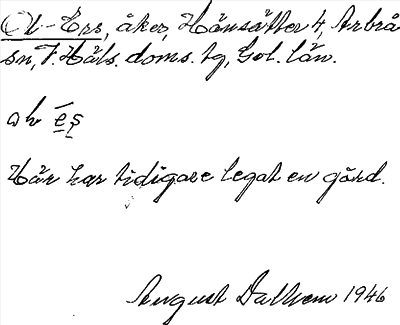 Ol-Ers, åker, Hånsätter 4, Arbrå
sn, F. Häls. doms. tg, Gol. län.
ɷh é̱ṣ
Här har tidigare legat en gård.
August Dalhem 1946